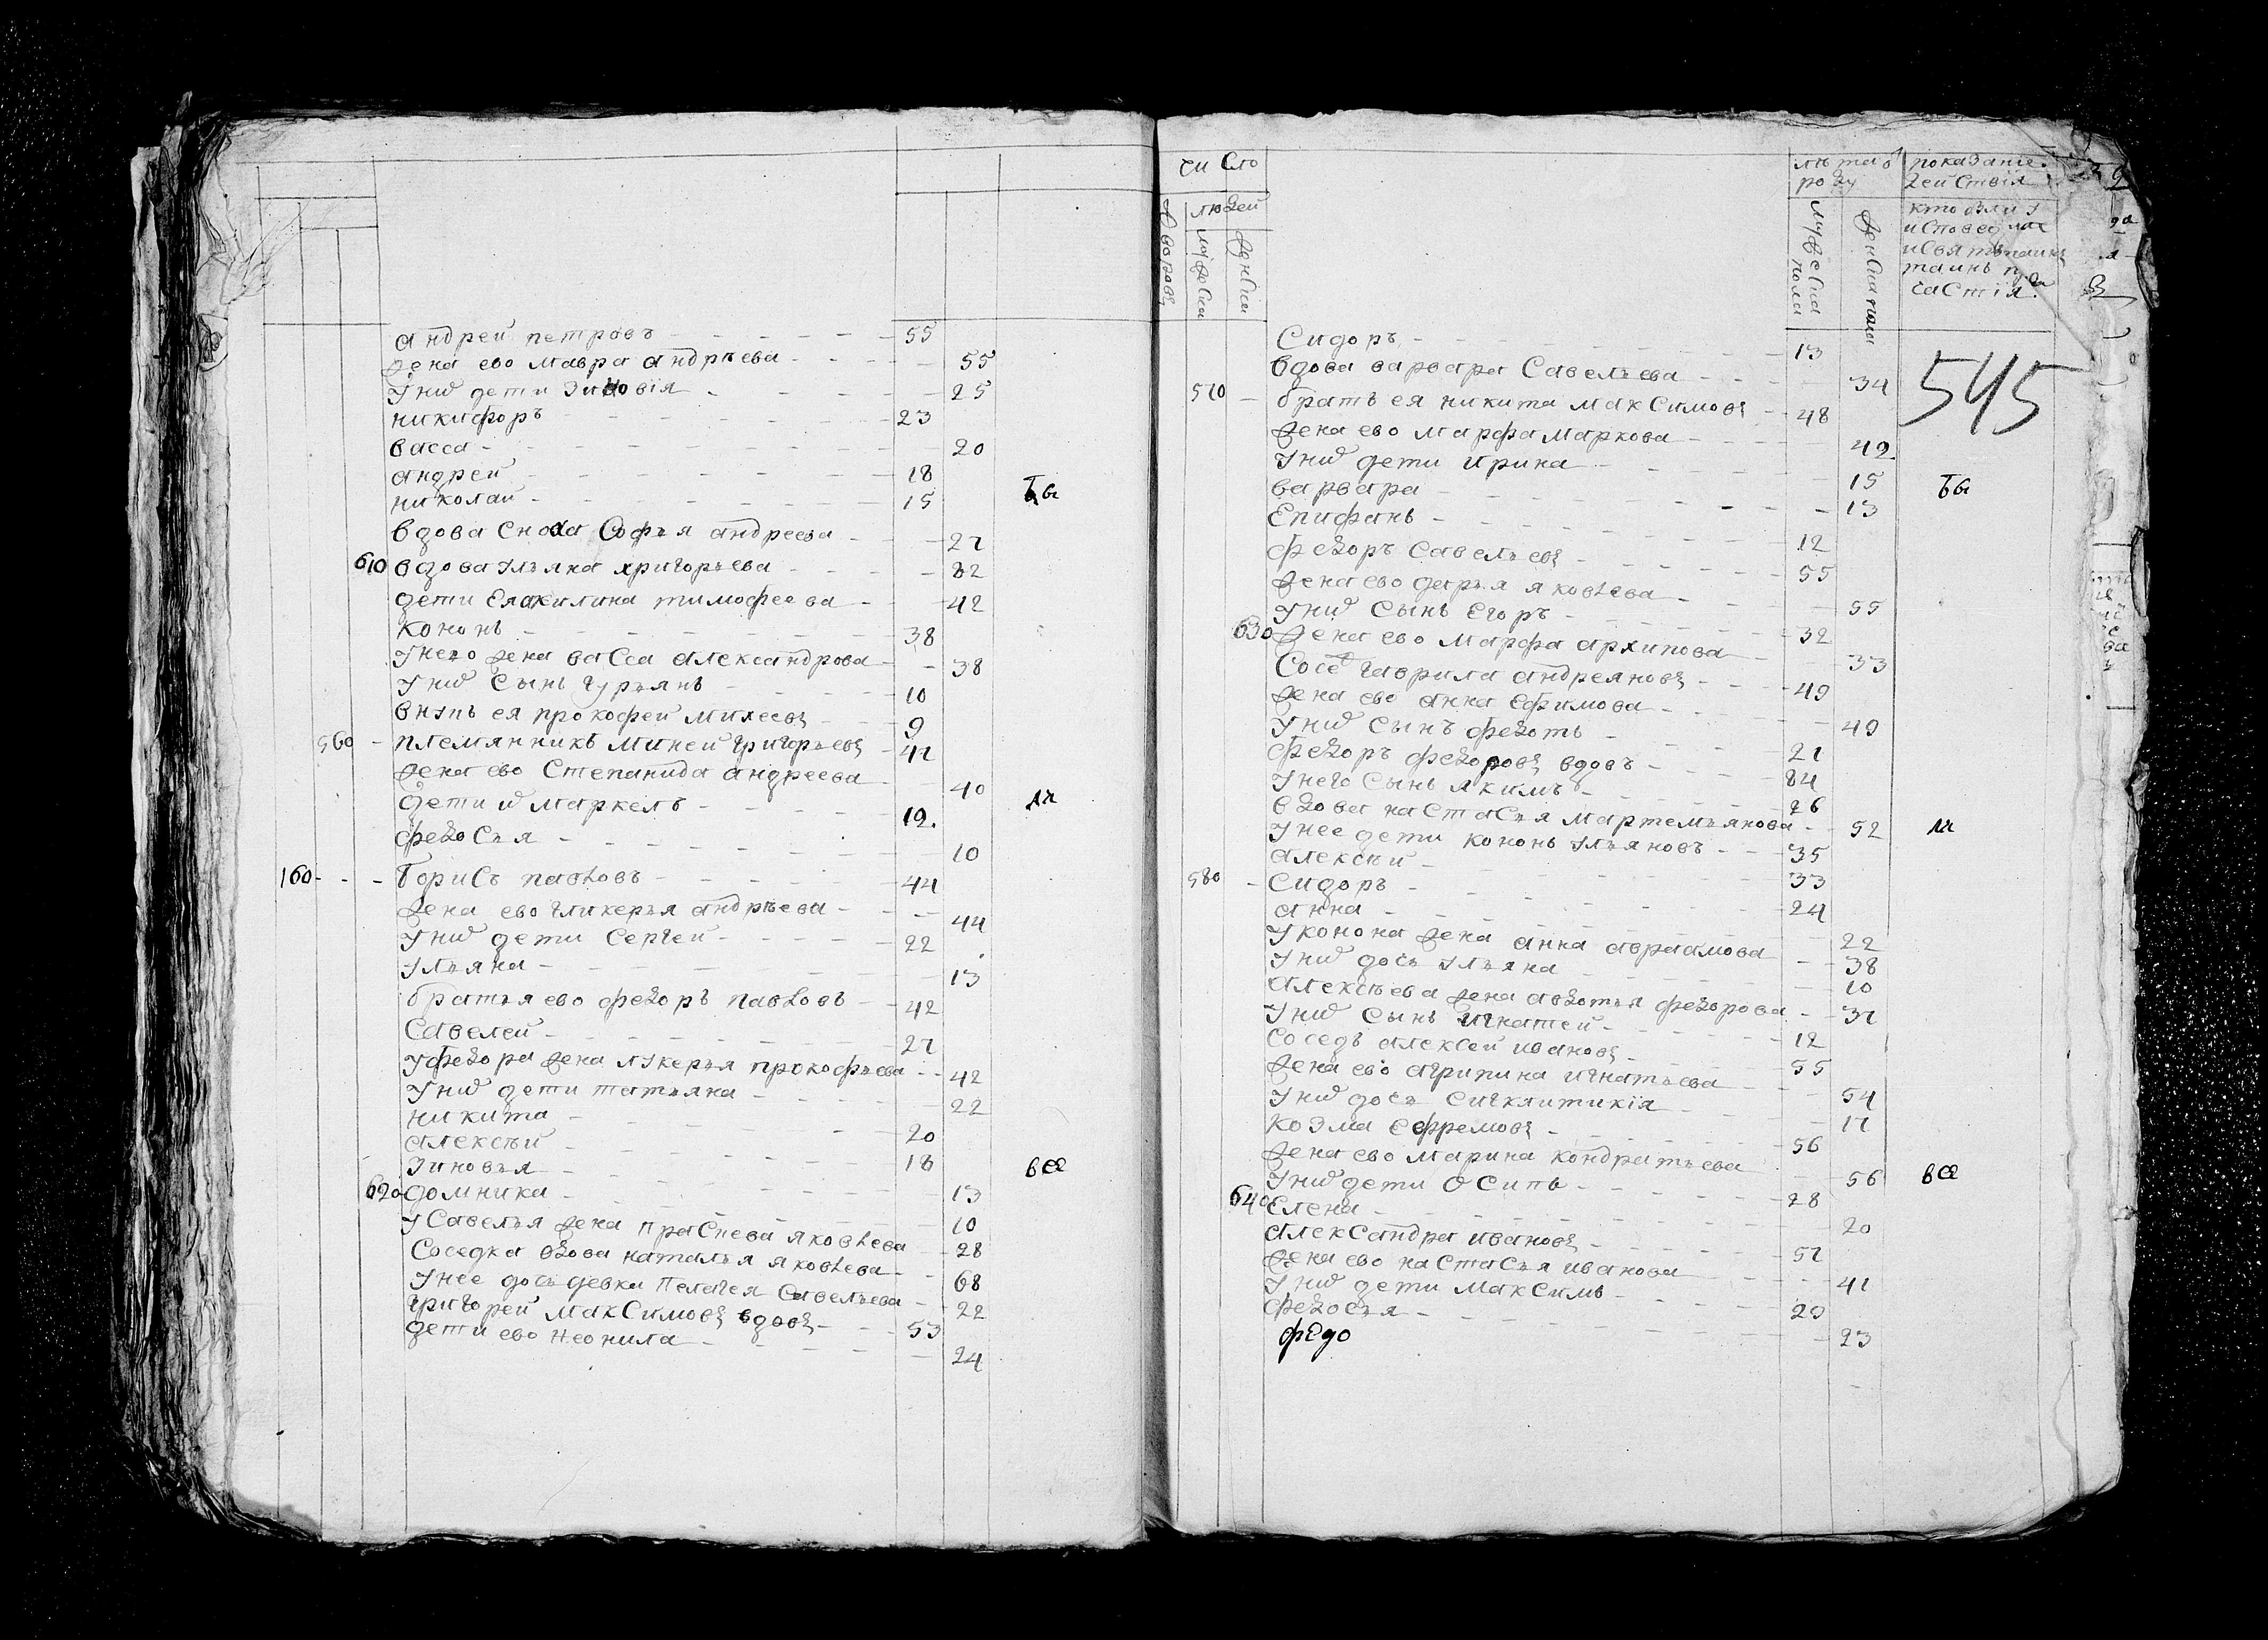 андрей петровъ - 55
жена ево мавра андрѣева - 55
У них дети Зиновія - 25
никифоръ - 23
васса - 20
андрей - 18
николаи - 15 Бы
вдова Сноха Софья андреева - 27
610 вдова Ульяна григорьева - 82
дети Еѧ акилина тимофеева - 42
Кононъ - 38
У него жена васса александрова - 38
У них Сынъ гурьянъ - 10
внукъ ея прокофеи михеевъ - 9
560 - племянникъ михеи григорьевъ - 41
жена ево Степанида андреева - 40
дети их маркелъ - 19. ли
федосья - 10
160 - - - борисъ павловъ - 44
жена ево гликерья андрѣева - 44
У них дети Сергеи - 22
Ульяна - 13
братья ево федоръ павловъ - 42
Савелеи - 27
У федора жена лукерья прокофьева - 42
У них дети татьяна - 22
никита - 20
алексѣи - 18
Зиновья - 13 все
620 домника - 10
У Савелья жена праскева яковлева - 28
Соседка вдова наталья яковлева - 68
У нее дочь девка Пелагея Савельева - 22
григореи максимовъ вдовъ - 53
дети ево неонила - 24
чи Сло
людеи
дворовъ
мужеска
женска
лѣта въ роду
мужеска пола
женска пола
показаніе действія
кто были У
исповеди
и святыхъ
таинъ при
частія
545
Сидоръ - 13
вдова варвара Савельева - 34
570 - братъ ея никита максимовъ - 48
жена ево марфа маркова - 49
У них дети ирина - 15 Бы
варвара - 13
Епифанъ - 12
федоръ Савельевъ - 55
жена ево дарья яковлева - 55
У них Сынъ Егоръ - 32
630 жена ево марфа архипова - 33
Сосед гаврила андреяновъ - 49
жена ево анна Ефимова - 49
У них Сынъ федотъ - 21
федоръ федоровъ вдовъ - 84
У него Сынъ якимъ - 26
вдова настасья мартемьянова - 52 ли
У нее дети кононъ Ульяновъ - 35
алексѣи - 33
580 - Сидоръ - 24
анна - 22
У конона жена анна авраамова - 38
У них дочь Ульяна - 10
алексѣева жена авдотья федорова - 37
У них Сынъ игнатеи - 12
Соседъ алексеи ивановъ - 55
жена ево агрипина игнатьева - 54
У них дочь Сигклитикія - 17
Козма Ефремовъ - 56
жена ево марина кондратьева - 56 все
У них дети Осипъ - 28
640 Елена - 20
александра ивановъ - 57
жена ево настасья иванова - 41
У них дети максимъ - 29
федосья - 23
федо